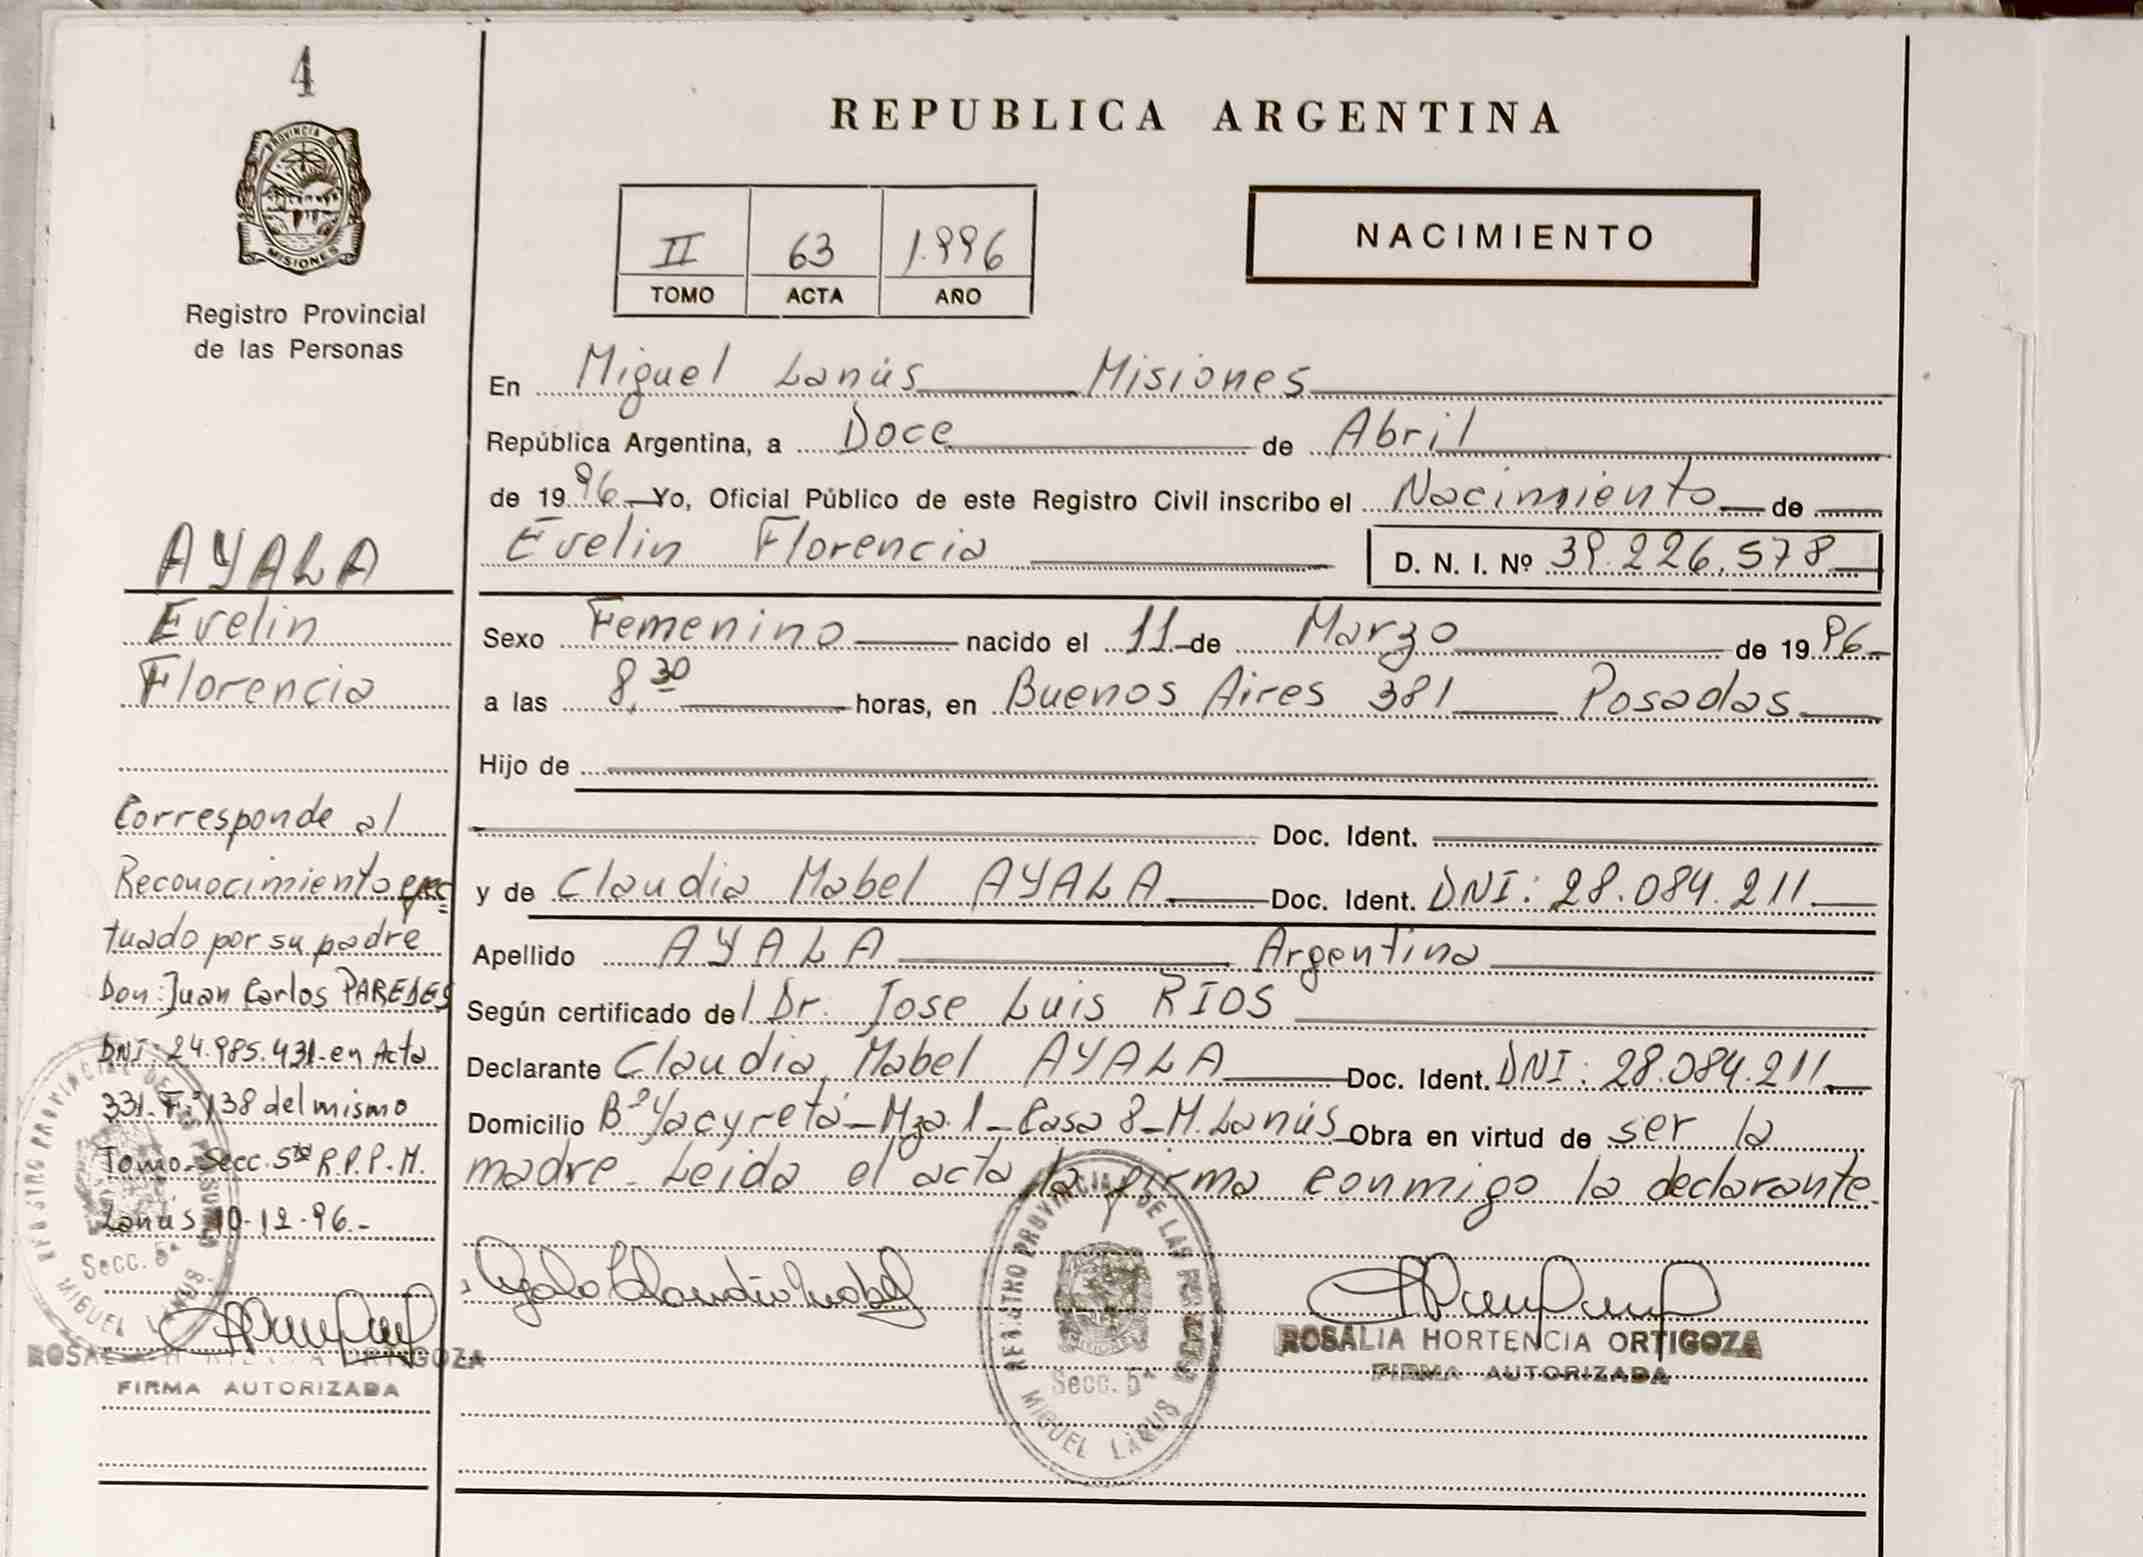 4
PROVINCIA D
MISIONES
Registro Provincial
de las Personas
AYALA
Evelin
Florencia
Corresponde al
Reconocimiento efec
tuado por su padre
Don: Juan Carlos PAREDES
DNI: 24.985.431- en Acta
331- Fº 138 del mismo
Tomo- Secc. 5ta R.P.P-M.
Lanús 10-12-96.-
REGISTRO PROVINCIAL DE LAS PERSONAS
Secc. 5ª
MIGUEL LANUS
ROSALIA HORTENCIA ORTIGOZA
FIRMA AUTORIZADA
REPUBLICA ARGENTINA
II 63 1.996
TOMO ACTA AÑO
NACIMIENTO
En Miguel Lanús Misiones
República Argentina, a Doce de Abril
de 1996 Yo, Oficial Público de este Registro Civil inscribo el Nacimiento de
Evelin Florencia D. N. I. Nº 39.226.578
Sexo Femenino nacido el 11 de Marzo de 1996
a las 8,30 horas, en Buenos Aires 381 Posadas
Hijo de
Doc. Ident.
y de Claudia Mabel AYALA Doc. Ident. DNI: 28.084.211
Apellido AYALA Argentina
Según certificado del Dr. Jose Luis RIOS
Declarante Claudia Mabel AYALA Doc. Ident. DNI: 28.084.211
Domicilio Bº Yacyretá- Mza.1- Casa 8- M. Lanús Obra en virtud de ser la
madre- Leida el acta la firma conmigo la declarante.
Ayala Claudia Mabel
REGISTRO PROVINCIAL DE LAS PERSONAS
Secc. 5ª
MIGUEL LANUS
ROSALIA HORTENCIA ORTIGOZA
FIRMA AUTORIZADA